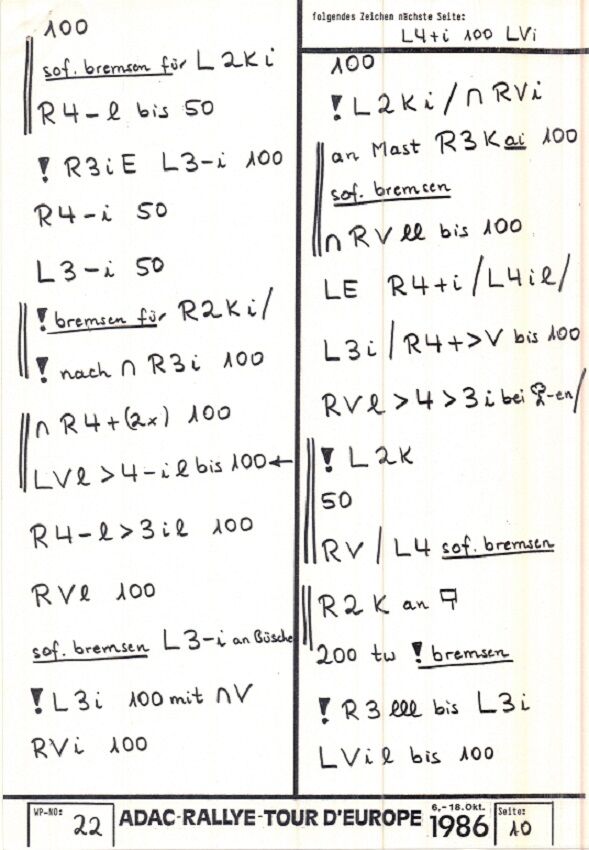 100
sof. bremsen für L2Ki
R4-l bis 50
! R3iE L3-i 100
R4-i 50
L3-i 50
! bremsen für R2Ki/
! nach ∩ R3i 100
∩ R4+(2x) 100
LVl>4-il bis 100←
R4-l>3il 100
RVl 100
sof. bremsen L3-i an Büsche
! L3i 100 mit ∩V
RVi 100
folgendes Zeichen nächste Seite:
L4+i 100 LVi
100
! L2Ki/∩RVi
an Mast R3Kai 100
sof. bremsen
∩RVll bis 100
LE R4+i/L4il/
L3i/R4+>V bis 100
RVl>4>3i bei -en/
! L2K
50
RV/L4 sof. bremsen
R2K an
200 tw ! bremsen
! R3lll bis L3i
LVil bis 100
WP-NO: 22
ADAC-RALLYE-TOUR D'EUROPE 6.-18.Okt. 1986
Seite: 10